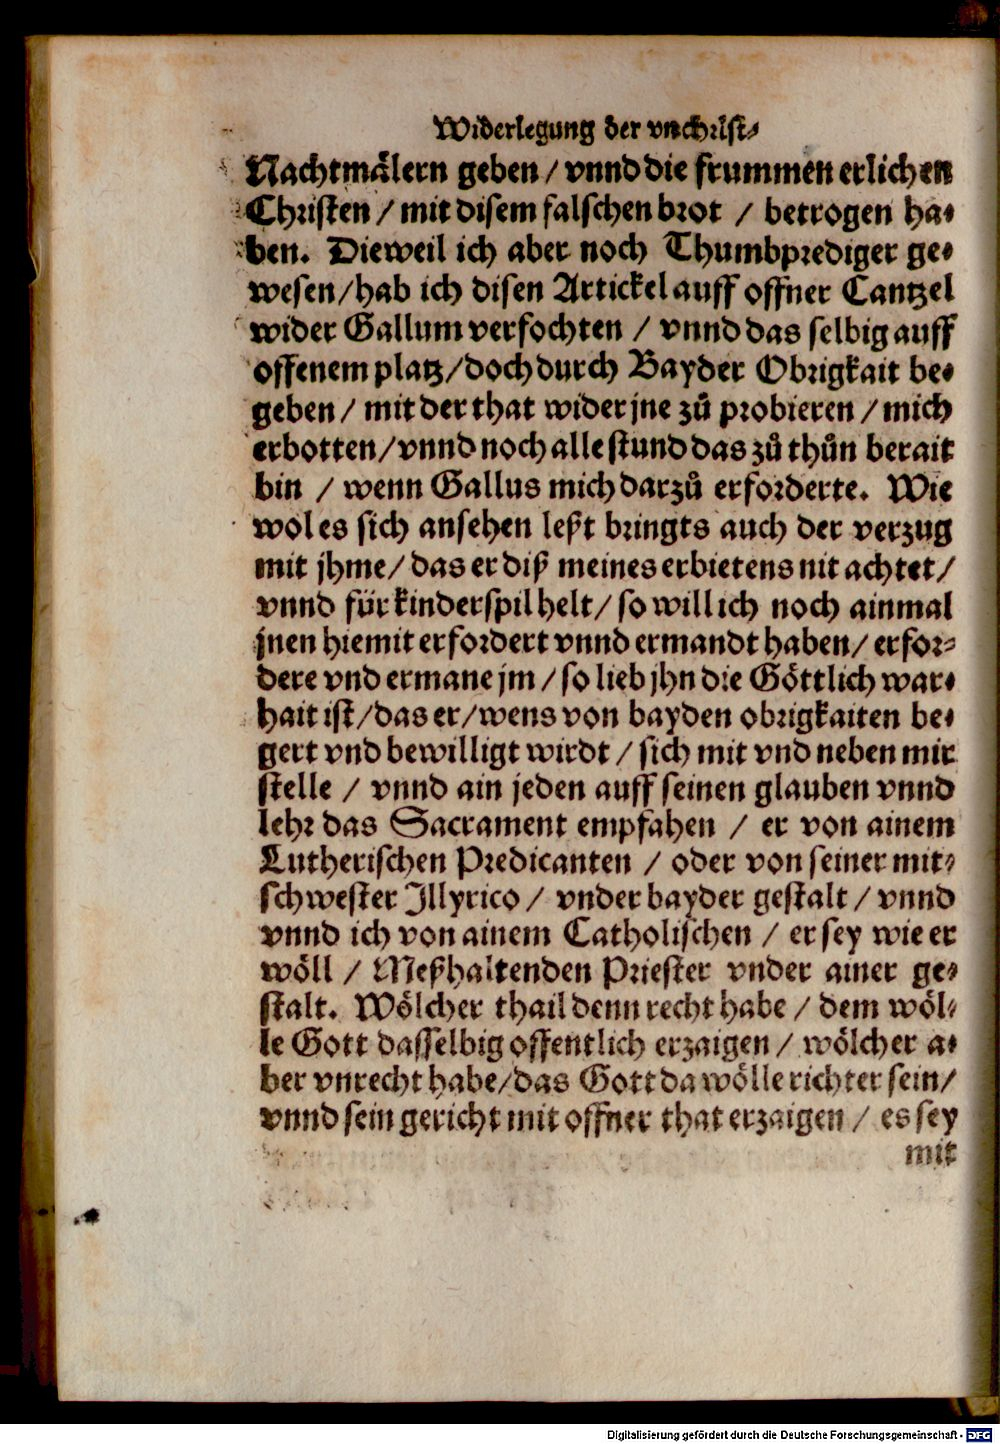 Widerlegung der vnchrist⸗
Nachtmälern geben / vnnd die frummen erlichen
Christen / mit disem falschen brot / betrogen ha⸗
ben. Dieweil ich aber noch Thumbprediger ge⸗
wesen/hab ich disen Artickel auff offner Cantzel
wider Gallum verfochten / vnnd das selbig auff
offenem platz/doch durch Bayder Obrigkait be⸗
geben / mit der that wider jne zů probieren / mich
erbotten/vnnd noch alle stund das zů thůn berait
bin / wenn Gallus mich darzů erforderte. Wie
wol es sich ansehen leßt bringts auch der verzug
mit jhme/ das er diß meines erbietens nit achtet/
vnnd für kinderspil helt/ so will ich noch ainmal
jnen hiemit erfordert vnnd ermandt haben/ erfor⸗
dere vnd ermane jm / so lieb jhn die Göttlich war⸗
hait ist/das er/wens von bayden obrigkaiten be⸗
gert vnd bewilligt wirdt / sich mit vnd neben mir
stelle / vnnd ain jeden auff seinen glauben vnnd
lehr das Sacrament empfahen / er von ainem
Lutherischen Predicanten / oder von seiner mit⸗
schwester Jllyrico / vnder bayder gestalt / vnnd
vnnd ich von ainem Catholischen / er sey wie er
wöll / Meßhaltenden Priester vnder ainer ge⸗
stalt. Wölcher thail denn recht habe / dem wöl⸗
le Gott dasselbig offentlich erzaigen / wölcher a⸗
ber vnrecht habe/das Gott da wölle richter sein/
vnnd sein gericht mit offner that erzaigen / es sey
mit
Digitalisierung gefördert durch die Deutsche Forschungsgemeinschaft - DFG